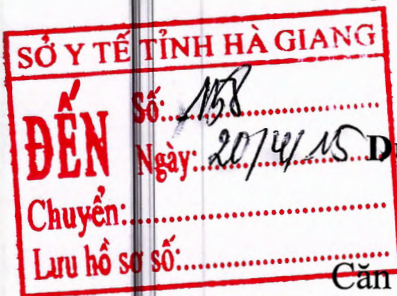 SỞ Y TẾ TỈNH HÀ GIANG
ĐẾN
Số: 1158
Ngày: 20/4/15
Chuyển:
Lưu hồ sơ số:
Căn